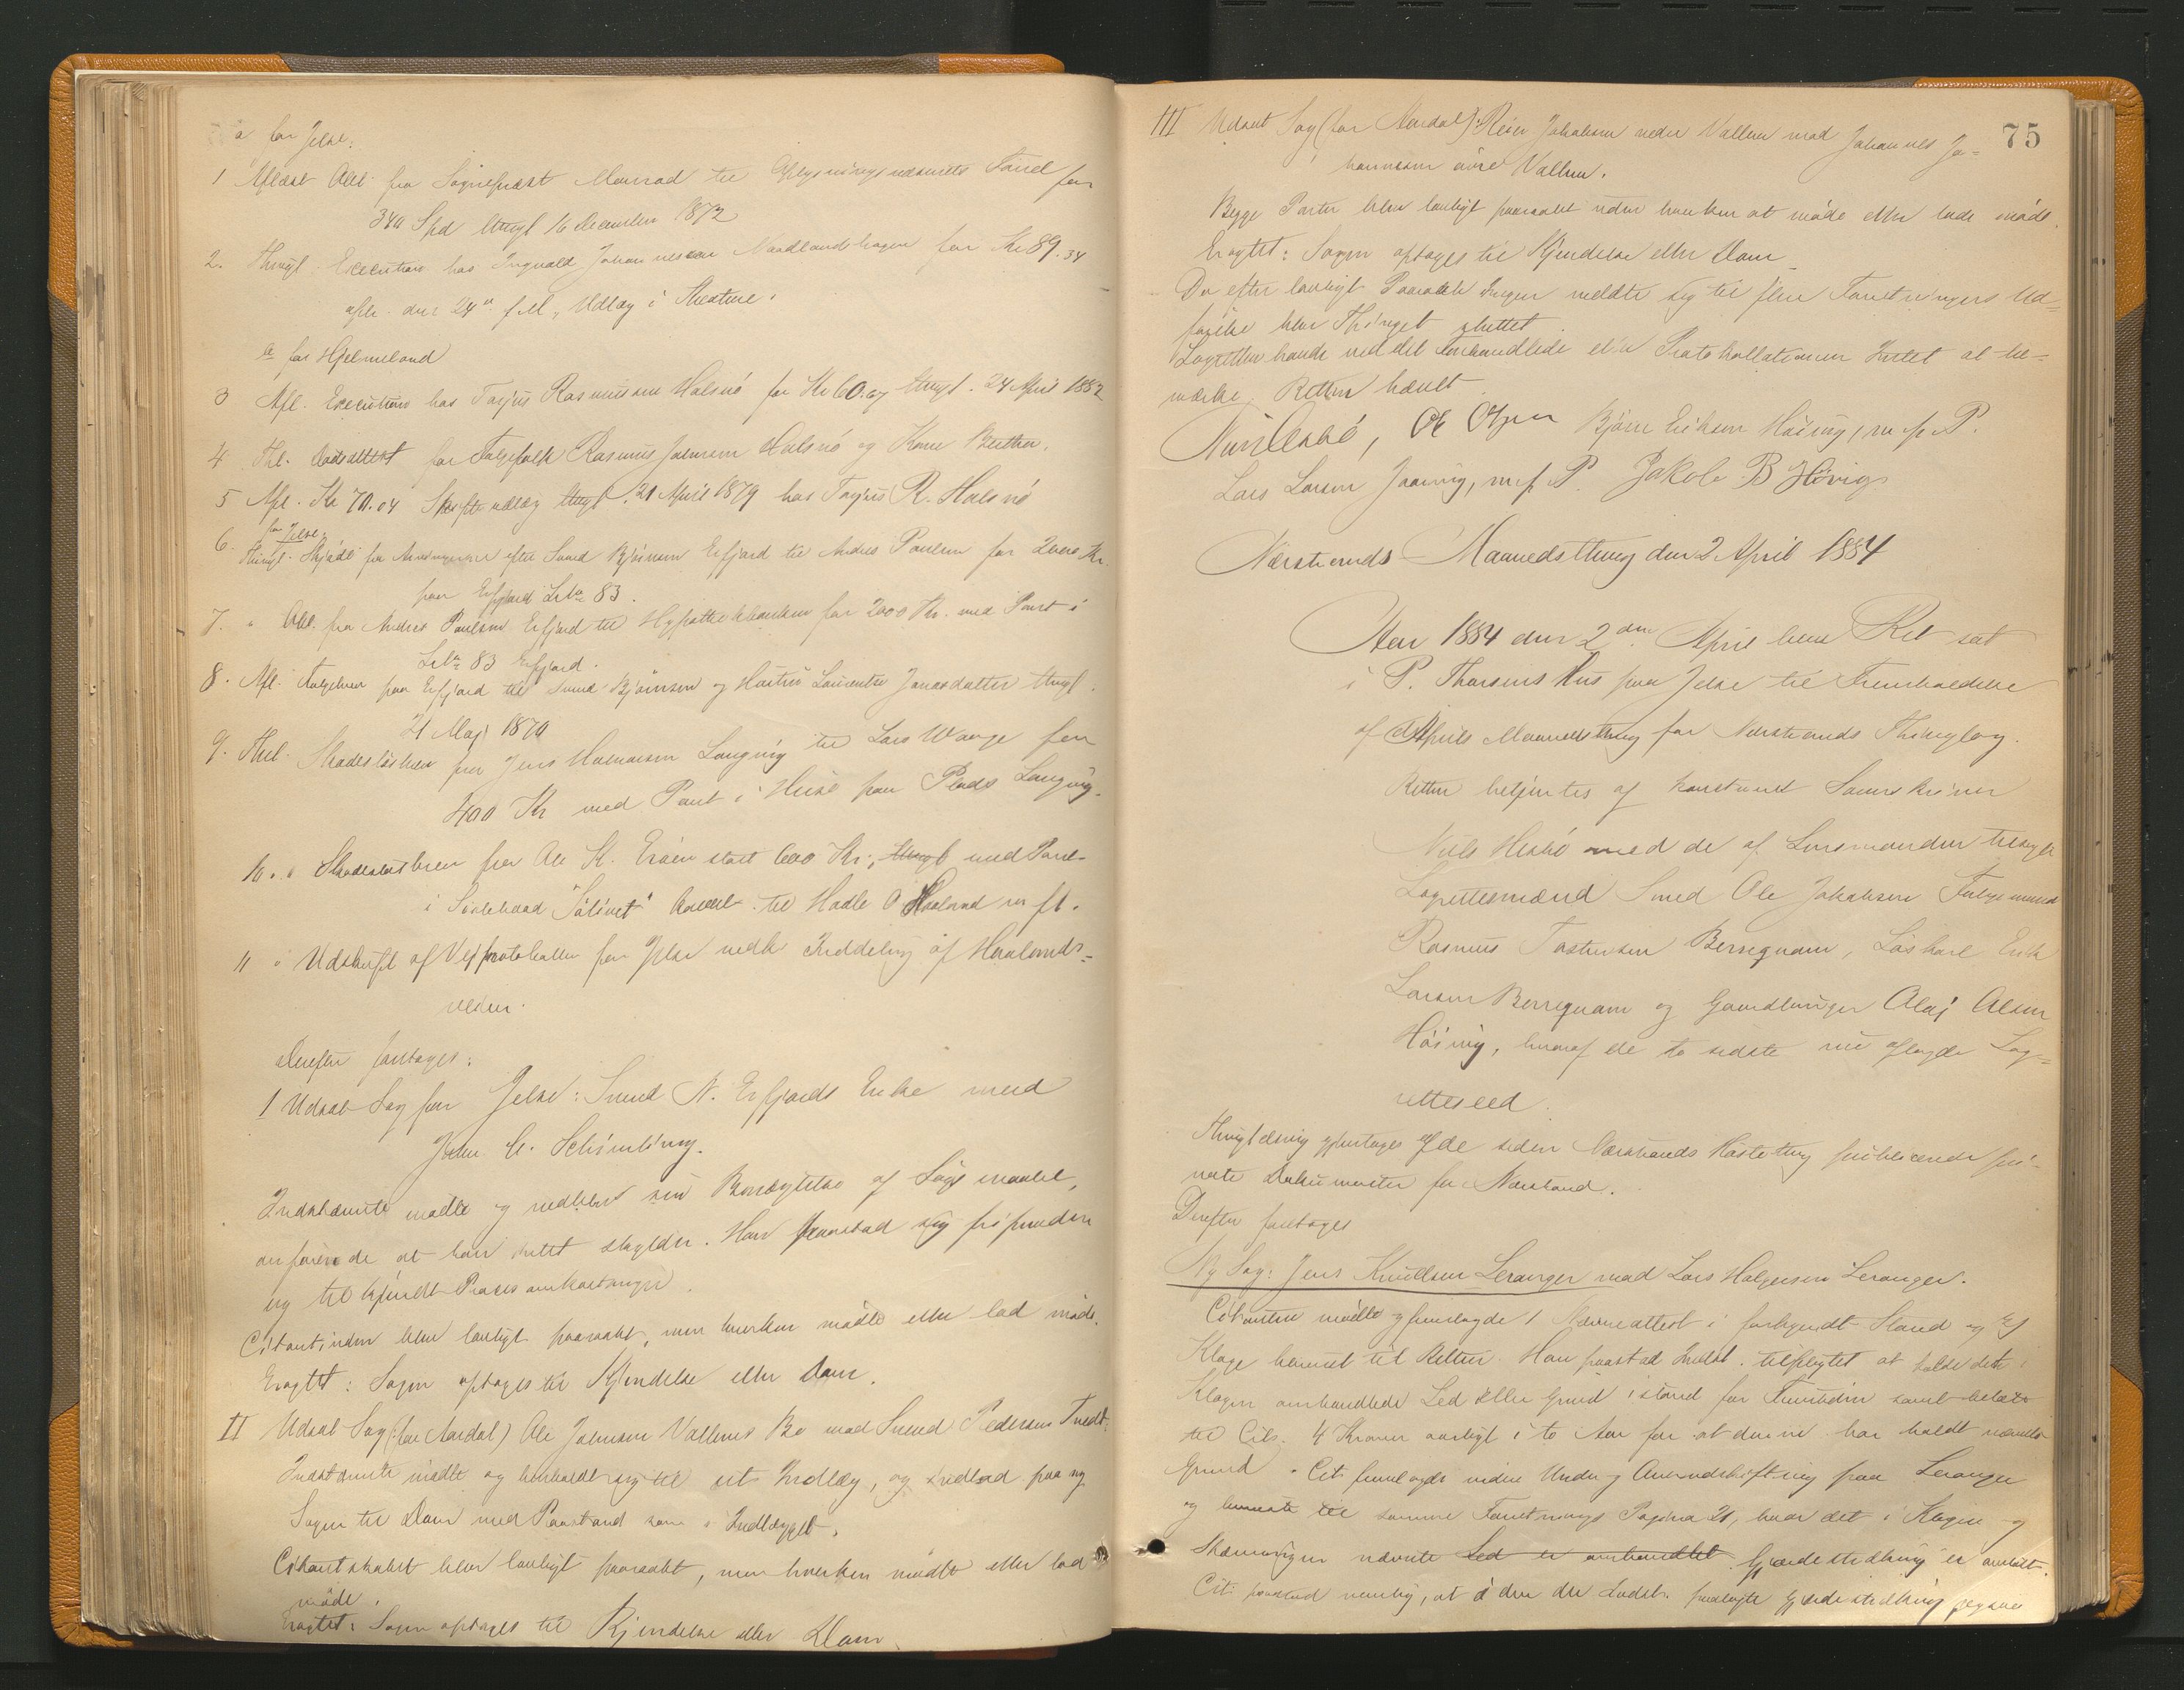 a for Jelse:
1 Aflæst Obl. fra Sognepræst Monrad til Oplysningsvæsenets Fond for
340 Spd thingl 16 December 1872
2. Thingl. Execution hos Ingvald Johannessen Nordlandshagen for Kr 89.34
afh. den 24de f. M., Udlæg i
b for Hjelmeland
3 Afl. Execution hos Tarjus Rasmussen Halsnø for Kr 60.07 thingl. 24 April 1882
4 Thl. Dødsattest for Folgefolk Rasmus Johnsen Halsnø og Kone Berthe.
5 Afl. Kr 70.04 Skifteudlæg thingl. 21 April 1879 hos Tarjus R. Halsnø
for Jelse
6. Thingl. Skjøde fra Arvingerne efter Svend Bjørnsen Erfjord til Andres Paulsen for 2000 Kr.
paa Erfjord Lbn 83.
7. " Obl. fra Andres Paulsen Erfjord til Hypothekbanken for 2000 Kr. med Pant i
Lbn 83 Erfjord.
8. Afl. Folgebrev paa Erfjord til Svend Bjørnsen og Hustru Laurentse Jonasdatter thingl.
21 Maj 1870
9. Thl. Skadesløsbrev fra Jens Halvorsen Langvig til Lars Wange for
400 Kr med Pant i Huse paa Plads Langvig.
10. " Skadesløsbrev fra Ole K. Eråen stort 600 Kr., thingl med Pant
i til Hadle O. Haaland m fl.
11 " Udskrift af Vejprotokollen for Jelse vedk Inddeling af Haalands-
veden.
Derefter foretoges:
I Udsat Sag for Jelse: Svend N. Erfjords Enke mod
John C. Schimling.
Indstævnte mødte og nedlagde sin Benægtelse af Søgsmaalet,
anførende at han intet skylder. Han paastod sig frifunden
og tilkjendt Procesomkostninger.
Citantinden blev lovligt paaraabt, men hverken mødte eller lod møde.
Eragtet: Sagen optages til Kjendelse eller Dom.
II Udsat Sag (for Aardal) Ole Johnsen Valhus Bo mod Svend Pedersen Tvedt.
Indstævnte mødte og henholdt sig til sit Indlæg, og indlod paa ny
Sagen til Dom med Paastand som i Indlægget.
Citantskabet blev lovligt paaraabt, men hverken mødte eller lod
møde.
Eragtet: Sagen optages til Kjendelse eller Dom.
75
III Udsat Sag (for Aardal) Reier Jakobsen nedre Valhus mod Johannes Jo-
hannesen øvre Valhus.
Begge Parter blev lovligt paaraabt uden hverken at møde eller lade møde.
Eragtet: Sagen optages til Kjendelse eller Dom
Da efter lovligt Paaraab Ingen meldte sig til flere Forretningers Ud-
førelse blev Thinget sluttet
Lagretten havde ved det forhandlede eller Protokollationen Intet at be-
mærke. Retten hævet
Niels Hesbø, Ole Olsen Bjørn Eriksen Høiung, m. f. P.
Lars Larsen Jaaving, m. f. P. Jakob B Høvig
Nerstrands Maanedsthing den 2 April 1884
Aar 1884 den 2den April blev Ret sat
i P. Thorsens Hus paa Jelse til Fremholdelse
af Aprils Maanedsthing for Nerstrands Thinglag.
Retten betjentes af konstitueret Sorenskriver
Niels Hesbø med de af Lensmanden tilsagte
Lagrettesmænd Svend Ole Jakobsen Folgemand
Rasmus Torstensen Berrequam, Løskarl Erik
Larsen Berrequam og Gaardbruger Olaj Olsen
Høivig, hvoraf de to sidste nu aflagde Lag-
retteseed.
Thinglæsning foretoges af de siden Nerstrands Høstething publicerende pri-
vate Dokumenter for Nerstrand.
Derefter foretoges
Ny Sag: Jens Knudsen Leranger mod Lars Halgersen Leranger.
Citanten mødte og fremlagde 1 Nævneattest i forkyndt Stand og 2)
Klage henvist til Retten. Han paastod Indst. tilpligtet at holde det i
Klagen omhandlede Led eller Grind istand for Fremtiden samt betale
til Cit. 4 Kroner aarligt i to Aar for at denne har holdt nævnte
Grind. Cit. fremlagde videre Under og Overudskiftning paa Leranger
og henviste til samme Forretnings Pagina 21, hvor det i Klagen og
Stævningen nævnte Led er omhandlet Gjærdestrækning er omtalt.
Cit. paastod nemlig, at i den der Indst. paalagte Gjærdestrækning